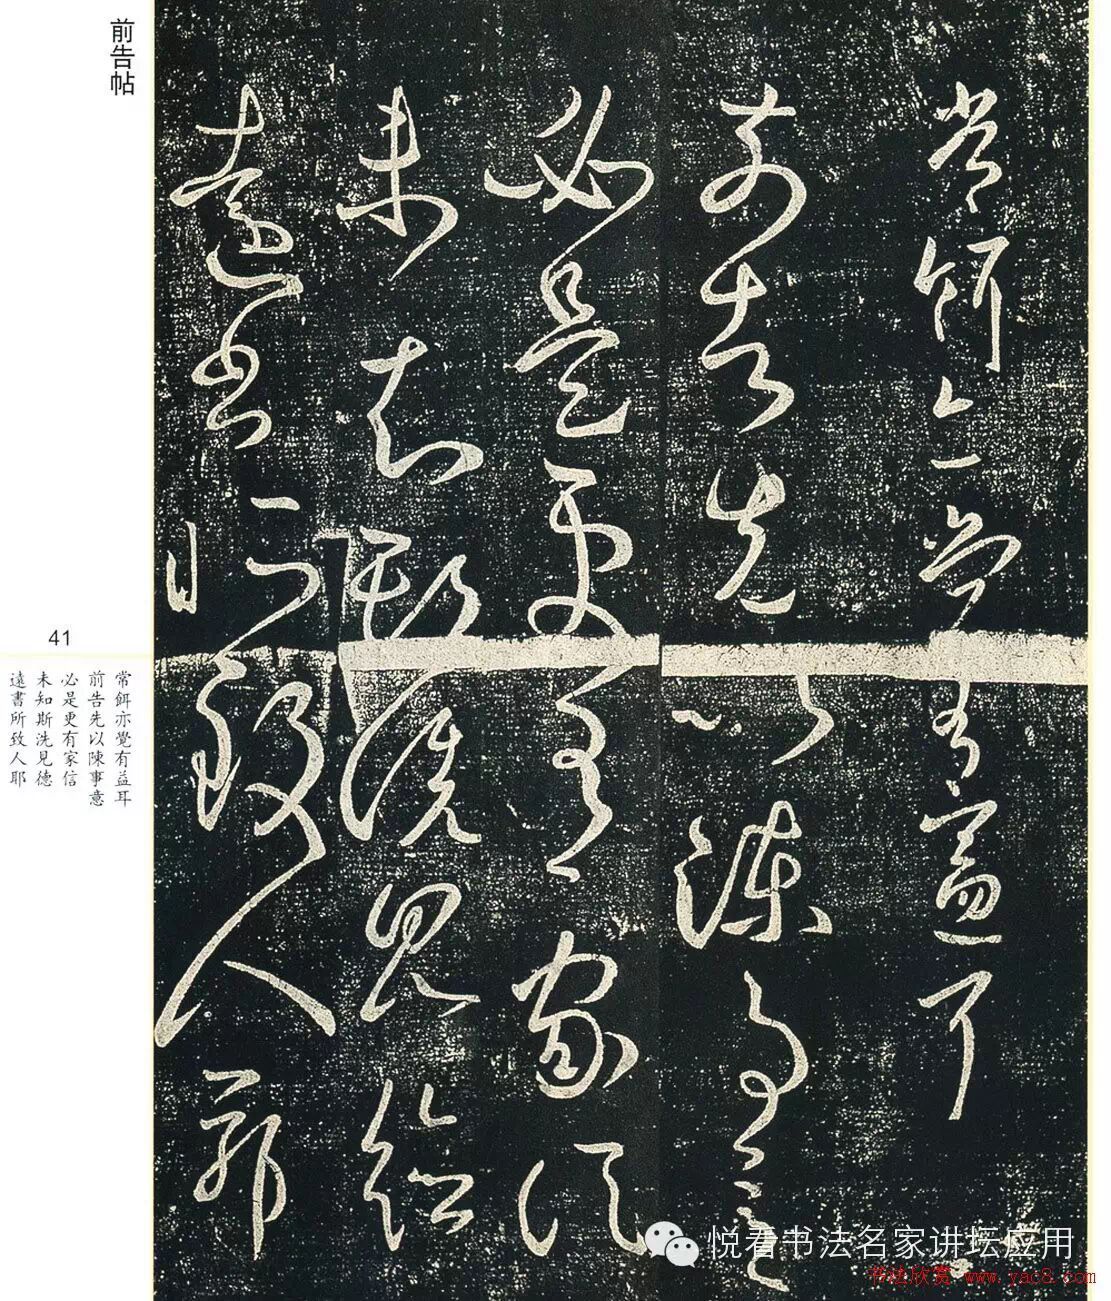 前告帖
常餌亦覺有益耳
前告先以陳事意
必是更有家信
未知斯洗見
遠書所致人耶
41
常餌亦覺有益耳
前告先以陳事意
必是更有家信
未知斯洗見德
遠書所致人耶
悦看书法名家讲坛应用
书法欣赏 www.yac8.com